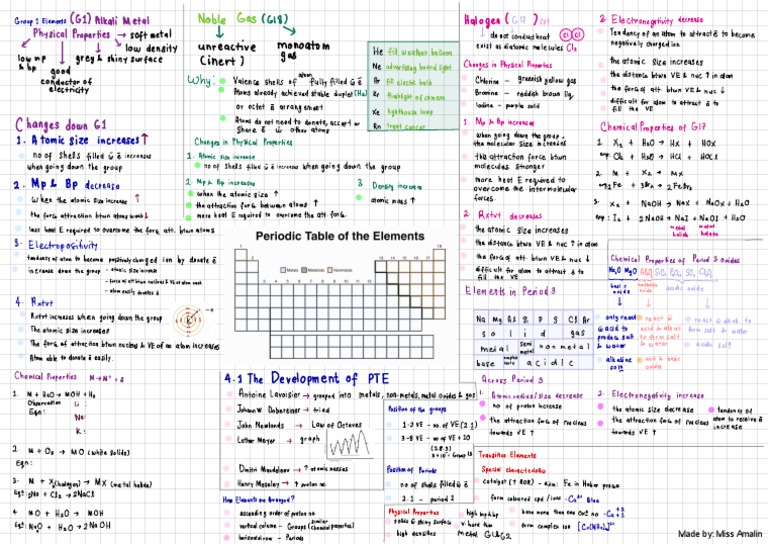 Group 1 Elements (G1) Alkali Metal
Physical Properties → soft metal
low density
low mp & bp
good conductor of electricity
grey & shiny surface
Changes down G1
1. Atomic size increases ↑
no of shells filled ē increase
when going down the group
2. Mp & Bp decrease
When the atomic size increase ↑
the force attraction btwn atoms weak ↓
less heat E required to overcome the att. btwn atoms
3. Electropositivity
tendency of atom to become positively charged ion by donate ē
increase down the group
- atomic size increase
- force of att btwn nucleus & VE of atom weak
- atom easily donates ē
4. Rxtvt
Rxtvt increases when going down the group
The atomic size increases
The force of attraction btwn nucleus & VE of an atom increases
Atom able to donate ē easily.
Chemical Properties M → M⁺ + ē
1. M + H₂O → MOH + H₂
Observation
Eqn:
Li:
Na:
K:
2. M + O₂ → MO (white solids)
Eqn:
3. M + X (halogen) → MX (metal halide)
Eq: 2Na + Cl₂ → 2NaCl
4. MO + H₂O → MOH
Eq: Na₂O + H₂O → 2NaOH
Noble Gas (G18)
unreactive (inert)
monoatom gas
Why:
Valence shells of atom fully filled ē
Atoms already achieved stable duplet (He)
or octet ē arrangement
Atoms do not need to donate, accept or
share ē w other atoms
He fill weather balloon
Ne advertising board light
Ar fill electric bulb
Kr flashlight of camera
Xe lighthouse lamp
Rn treat cancer
Changes in Physical Properties
1. Atomic size increase
no of shells filled ē increase when going down the group
2. Mp & Bp increases
when the atomic size ↑
the attraction force between atoms ↑
more heat E required to overcome the att forc.
3. Density increase
atomic mass ↑
Periodic Table of the Elements
1 2 13 14 15 16 17 18
Metals Metalloids Nonmetals
4.1 The Development of PTE
Antoine Lavoisier → grouped into metals, non-metals, metal oxides & gas
Johann W. Dobereiner → triad
John Newlands → Law of Octaves
Lothar Meyer → graph
Dmitri Mendeleev → ↑ atomic masses
Henry Moseley → ↑ proton no.
How Elements are Arranged?
ascending order of proton no
vertical column - Groups (similar chemical properties)
horizontal row - Periods
Position of the groups
1-2 VE - no. of VE (2.1)
3-8 VE - no of VE + 10
(2.8.3)
3+10 = Group 13
Position of Periods
no of shells filled ē
2.1 - period 2
Physical Properties
solid & shiny surface
high densities
high mp & bp
v. hard than metal G1&G2
Halogen (G17)
do not conduct heat
exist as diatomic molecules Cl₂
Cl Cl
Changes in Physical Properties
Chlorine - greenish yellow gas
Bromine - reddish brown liq.
Iodine - purple solid
1. Mp & Bp increases
When going down the group,
the molecular size increases
the attraction force btwn
molecules stronger
more heat E required to
overcome the intermolecular
forces.
2. Rxtvt decreases
the atomic size increases
the distance btwn VE & nuc ↑ in atom
the force of att btwn VE & nuc ↓
difficult for atom to attract ē to
fill the VE
Elements in Period 3
Na Mg Al Si P S Cl Ar
solid gas
metal semi metal non metal
base amphoteric acidic
2. Electronegativity decrease
Tendency of an atom to attract ē to become
negatively charged ion
the atomic size increases
the distance btwn VE & nuc ↑ in atom
the force of att btwn VE & nuc ↓
difficult for atom to attract ē to
fill the VE
Chemical Properties of G17
1. X₂ + H₂O → HX + HOX
exp: Cl₂ + H₂O → HCl + HOCl
2. M + X₂ → MX
exp: 2Fe + 3Br₂ → 2FeBr₃
3. X₂ + NaOH → NaX + NaOX + H₂O
exp: I₂ + 2NaOH → NaI + NaOI + H₂O
Chemical Properties of Period 3 Oxides
Na₂O MgO Al₂O₃
basic oxide
acidic oxide
only react w acid to produce salt & water
alkaline soln
react w acid & alkali to form salt & water
acid & basic oxides
react w alkali to form salt & water
acidic soln
Across Period 3
1. Atomic radius/size decrease
no of proton increase
the attraction force of nucleus
towards VE ↑
2. Electronegativity increase
the atomic size decrease
the attraction force of nucleus
towards VE ↑
tendency of atom to receive ē increase
Transition Elements
Special characteristics
catalyst (↑ ROR) - exm: Fe in Haber process
form coloured cpd / ions - Cu²⁺ Blue
have more than one ox no - Cu⁺¹ ⁺²
form complex ion
Made by: Miss Amalin